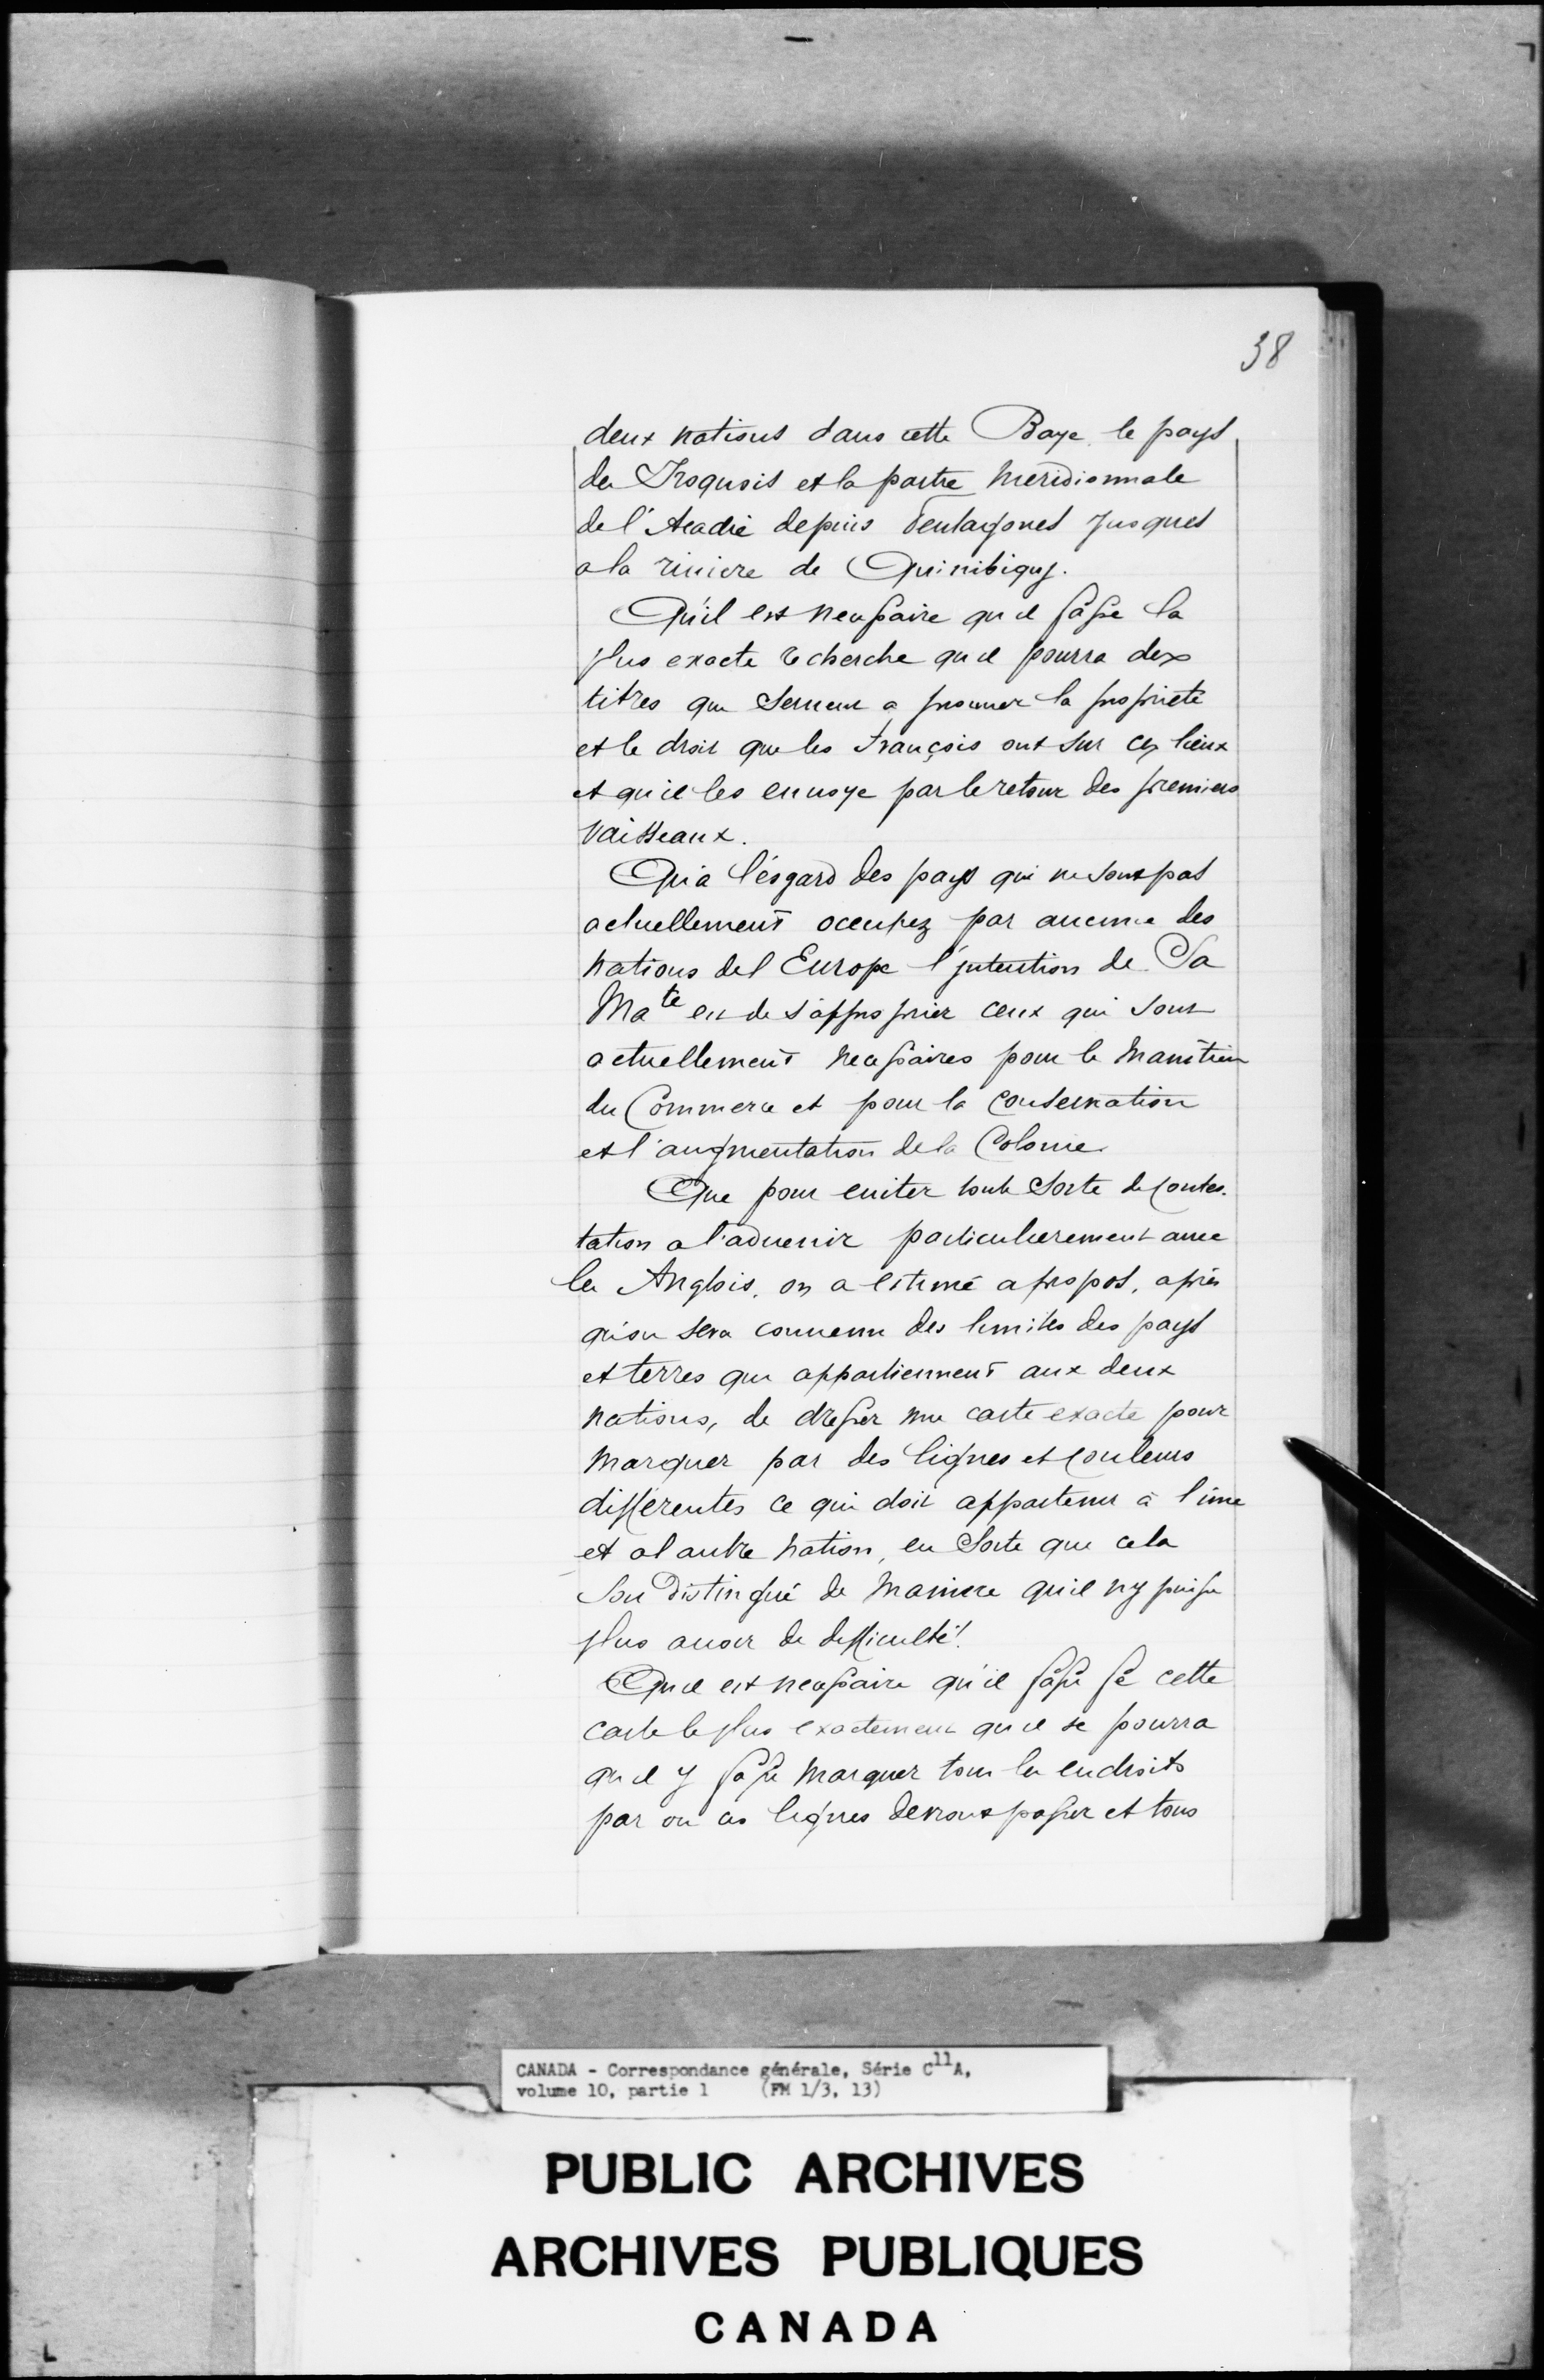 38
deux nations dans cette Baye, le pays
des Iroquois et la partie meridionnale
de l'Acadie depuis Pentagouet Jusques
a la riviere de Quinibiquy.
Qu'il est necessaire qu'il fasse la
plus exacte recherche qu'il pourra des
titres qui servent a prouver la proprieté
et le droit que les françois ont sur ces lieux
et qu'il les envoye par le retour des premiers
Vaisseaux.
Qu'a l'ésgard des pays qui ne sont pas
actuellement occupez par aucune des
nations del Europe l'jntention de Sa
Ma<sup>te</sup> est de s'approprier ceux qui sont
actuellement necessaires pour le maintien
du Commerce et pour la conservation
et l'augmentation de la Colonie
Que pour euiter toute Sorte de Contes-
tation a l'aduenir particulierement auec
les Anglois, on a estimé a propos, après
qu'on sera conuenu des limites des pays
et terres qui appartiennent aux deux
nations, de dresser une carte exacte pour
marquer par des lignes et Couleurs
differentes ce qui doit appartenir à l'une
et al autre nation, en Sorte que cela
Soit distingué de maniere qu'il ny puisse
plus auoir de difficulté.
Qu'il est necessaire qu'il fasse fe cette
carte le plus exactement qu'il se pourra
qu'il y fasse marquer tous les endroits
par ou ces lignes devront passer et tous
CANADA - Correspondance générale, Série C<sup>11</sup>A,
volume 10, partie 1 (FM 1/3, 13)
PUBLIC ARCHIVES
ARCHIVES PUBLIQUES
CANADA